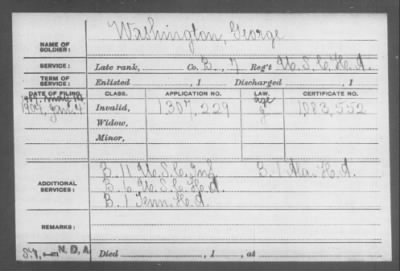 Washington, George
NAME OF SOLDIER:
SERVICE: Late rank, Co. B, 7 Reg't U. S. C. H. A.
TERM OF SERVICE: Enlisted , 1 Discharged , 1
DATE OF FILING. CLASS. APPLICATION NO. LAW. CERTIFICATE NO.
Invalid, 1,307,229 1,083,552
Widow,
Minor,
B. 11 U. S. C. Inf. B. 1 Ala. H. A.
ADDITIONAL SERVICES: B. 6 U. S. C. H. A.
B. 1 Tenn. H. A.
REMARKS:
N. D. A. Died , 1 , at